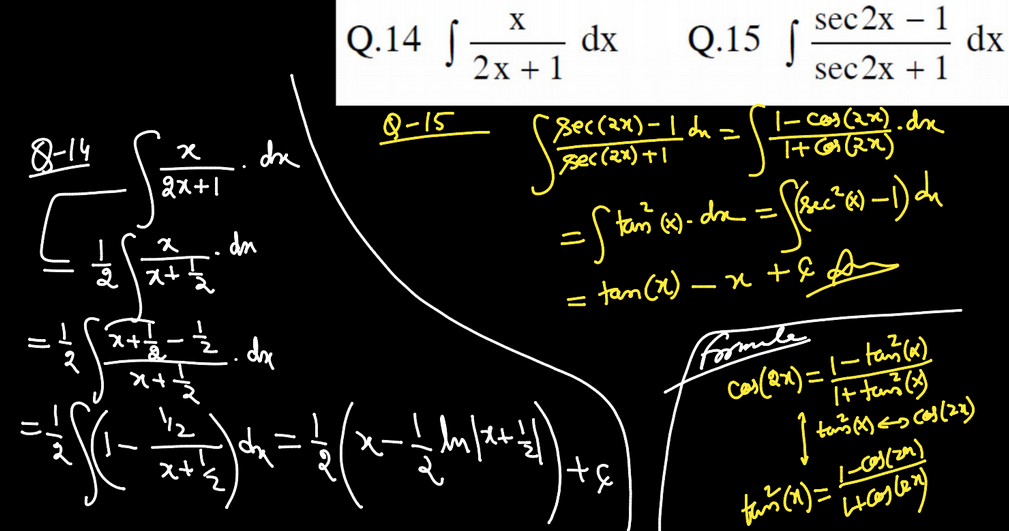 Q.14 ∫ x/(2x + 1) dx    Q.15 ∫ (sec2x − 1)/(sec2x + 1) dx
Q-14 ∫ x/(2x+1) . dx
= 1/2 ∫ x/(x+1/2) . dx
= 1/2 ∫ (x+1/2 − 1/2)/(x+1/2) . dx
= 1/2 ∫ (1 − (1/2)/(x+1/2)) dx = 1/2 (x − 1/2 ln|x+1/2|) + c
Q-15 ∫ (sec(2x)−1)/(sec(2x)+1) dx = ∫ (1−cos(2x))/(1+cos(2x)) . dx
= ∫ tan²(x) . dx = ∫ (sec²(x) −1) dx
= tan(x) − x + c
Formula
cos(2x) = (1−tan²(x))/(1+tan²(x))
↕ tan²(x) ↔ cos(2x)
tan²(x) = (1−cos(2x))/(1+cos(2x))